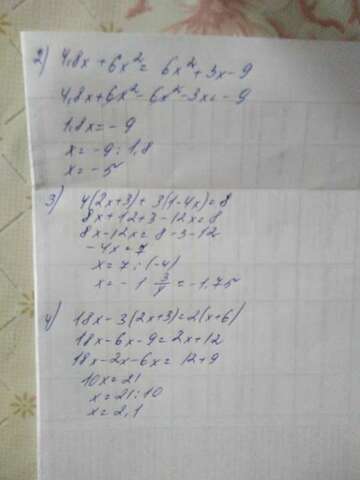 2) 4,8x + 6x² = 6x² + 3x - 9
4,8x + 6x² - 6x² - 3x = - 9
1,8x = - 9
x = - 9 : 1,8
x = - 5
3) 4(2x+3) + 3(1-4x) = 8
8x + 12 + 3 - 12x = 8
8x - 12x = 8 - 3 - 12
- 4x = 7
x = 7 : (-4)
x = - 1 3/4 = - 1,75
4) 18x - 3(2x+3) = 2(x+6)
18x - 6x - 9 = 2x + 12
18x - 2x - 6x = 12 + 9
10x = 21
x = 21 : 10
x = 2,1